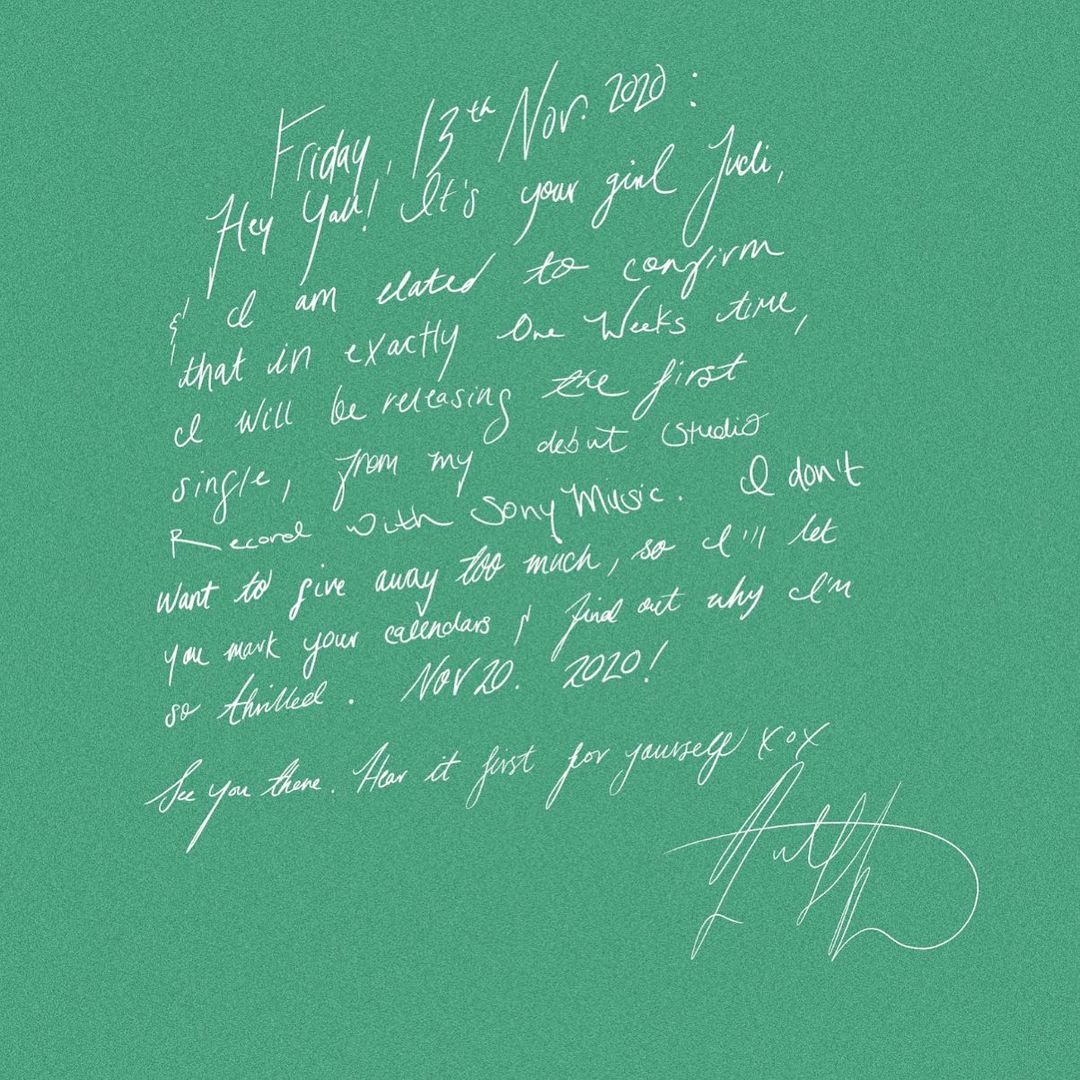 Friday, 13th Nov. 2020:
Hey Yall! It's your girl Judi,
& I am elated to confirm
that in exactly One Weeks time,
I will be releasing the first
single, from my debut studio
Record with Sony Music. I don't
want to give away too much, so I'll let
you mark your calendars & find out why I'm
so thrilled. Nov 20. 2020!
See you there. Hear it first for yourself xox